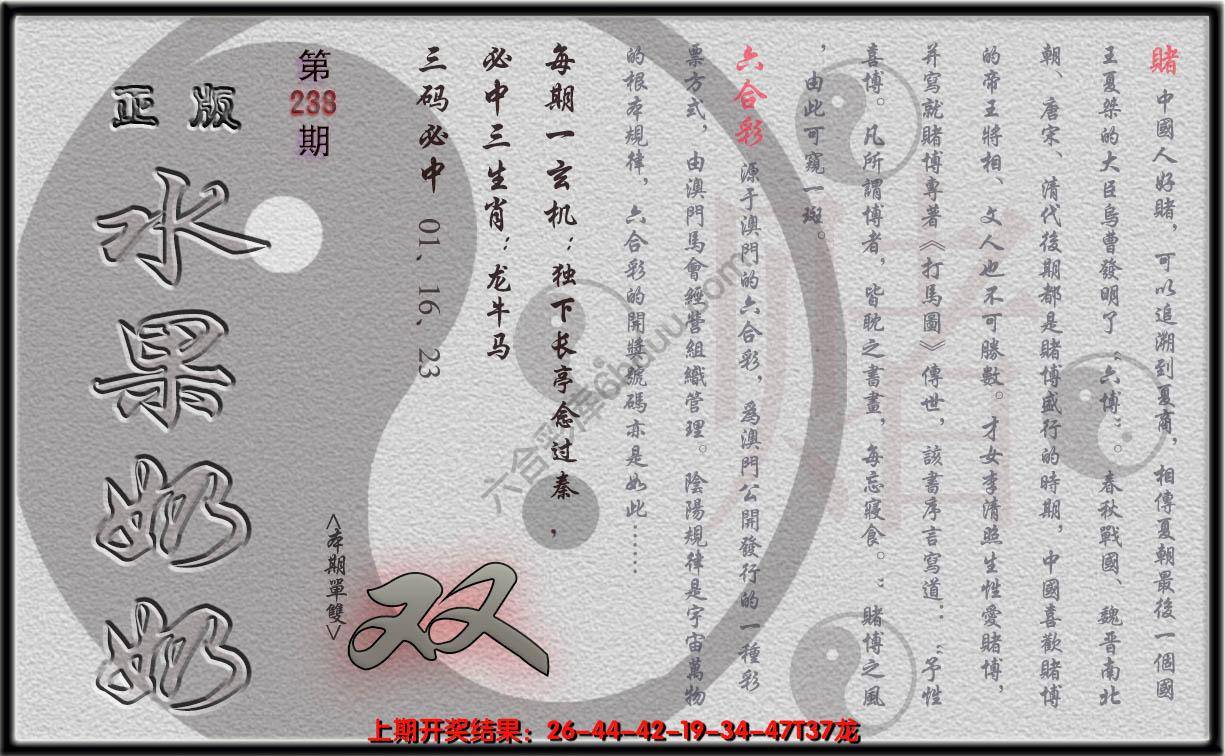 賭 中國人好賭，可以追溯到夏商，相傳夏朝最後一個國
王夏桀的大臣烏曹發明了“六博”。春秋戰國、魏晋南北
朝、唐宋、清代後期都是賭博盛行的時期，中國喜歡賭博
的帝王將相、文人也不可勝數。才女李清照生性愛賭博，
并寫就賭博專著《打馬圖》傳世，該書序言寫道：“予性
喜博。凡所謂博者，皆耽之書畫，每忘寢食。”賭博之風
，由此可窺一斑。
六合彩 源于澳門的六合彩，爲澳門公開發行的一種彩
票方式，由澳門馬會經營組織管理。陰陽規律是宇宙萬物
的根本規律，六合彩的開獎號碼亦是如此……
每期一玄机：独下长亭念过秦，
必中三生肖：龙牛马
三码必中 01、16、23
第
238
期
<本期單雙>
双
正版
水果奶奶
赌
六合彩库6hbuu.com
上期开奖结果：26-44-42-19-34-47T37龙